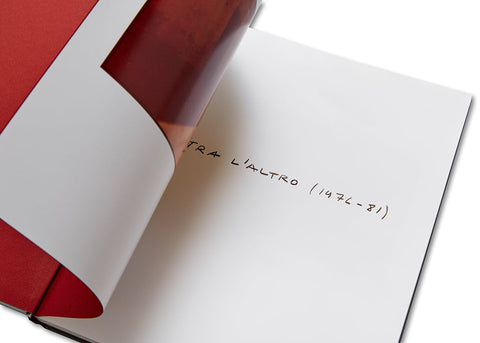 TRA L'ALTRO (1976-81)